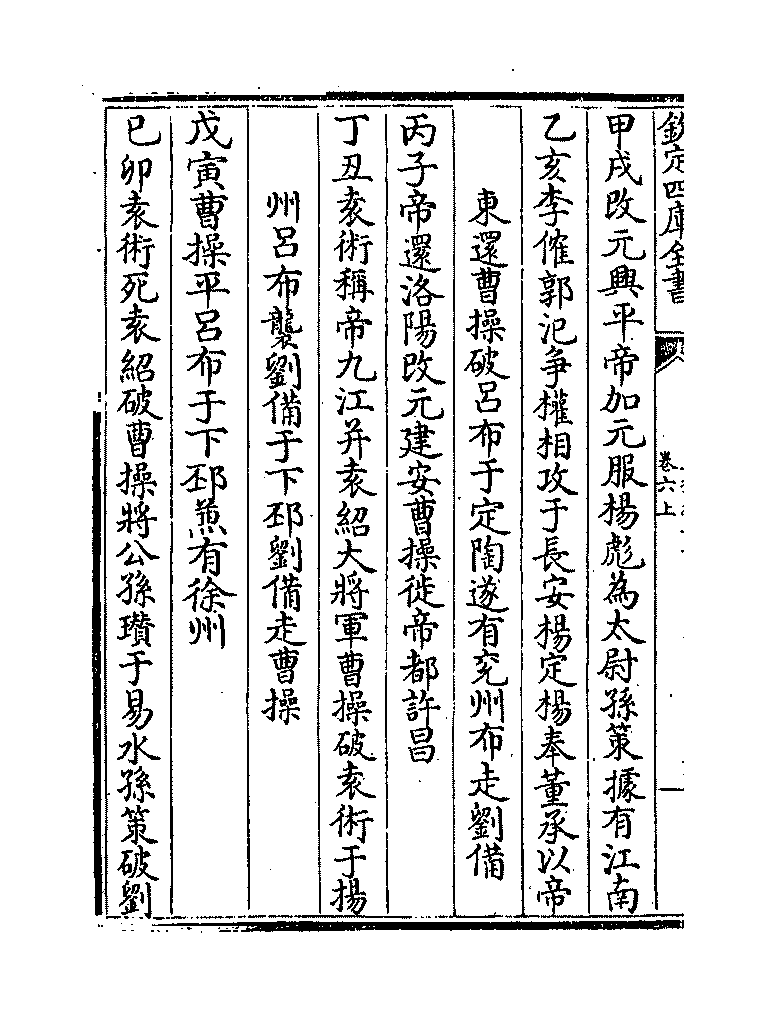 欽定四庫全書
卷六上
甲戌改元興平帝加元服楊彪為太尉孫策據有江南
乙亥李傕郭汜爭權相攻于長安楊定楊奉董承以帝
東還曹操破呂布于定陶遂有兖州布走劉備
丙子帝還洛陽改元建安曹操徙帝都許昌
丁丑袁術稱帝九江并袁紹大將軍曹操破袁術于揚
州呂布襲劉備于下邳劉備走曹操
戊寅曹操平呂布于下邳兼有徐州
已卯袁術死袁紹破曹操將公孫瓚于易水孫策破劉